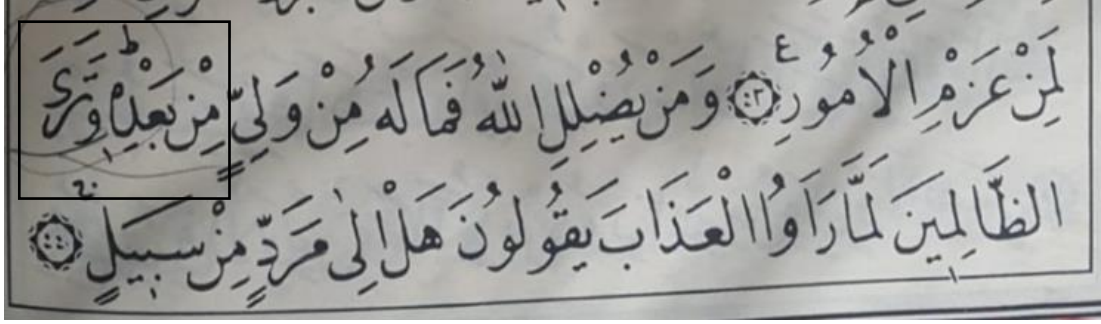 لَمِنْ عَزْمِ الْاُمُوْرِ ﴿٤٣﴾ ع وَمَنْ يُّضْلِلِ اللّٰهُ فَمَا لَهٗ مِنْ وَّلِيٍّ مِّنْ بَعْدِهٖ ط وَتَرَى
الظّٰلِمِيْنَ لَمَّا رَاَوُا الْعَذَابَ يَقُوْلُوْنَ هَلْ اِلٰى مَرَدٍّ مِّنْ سَبِيْلٍ ﴿٤٤﴾